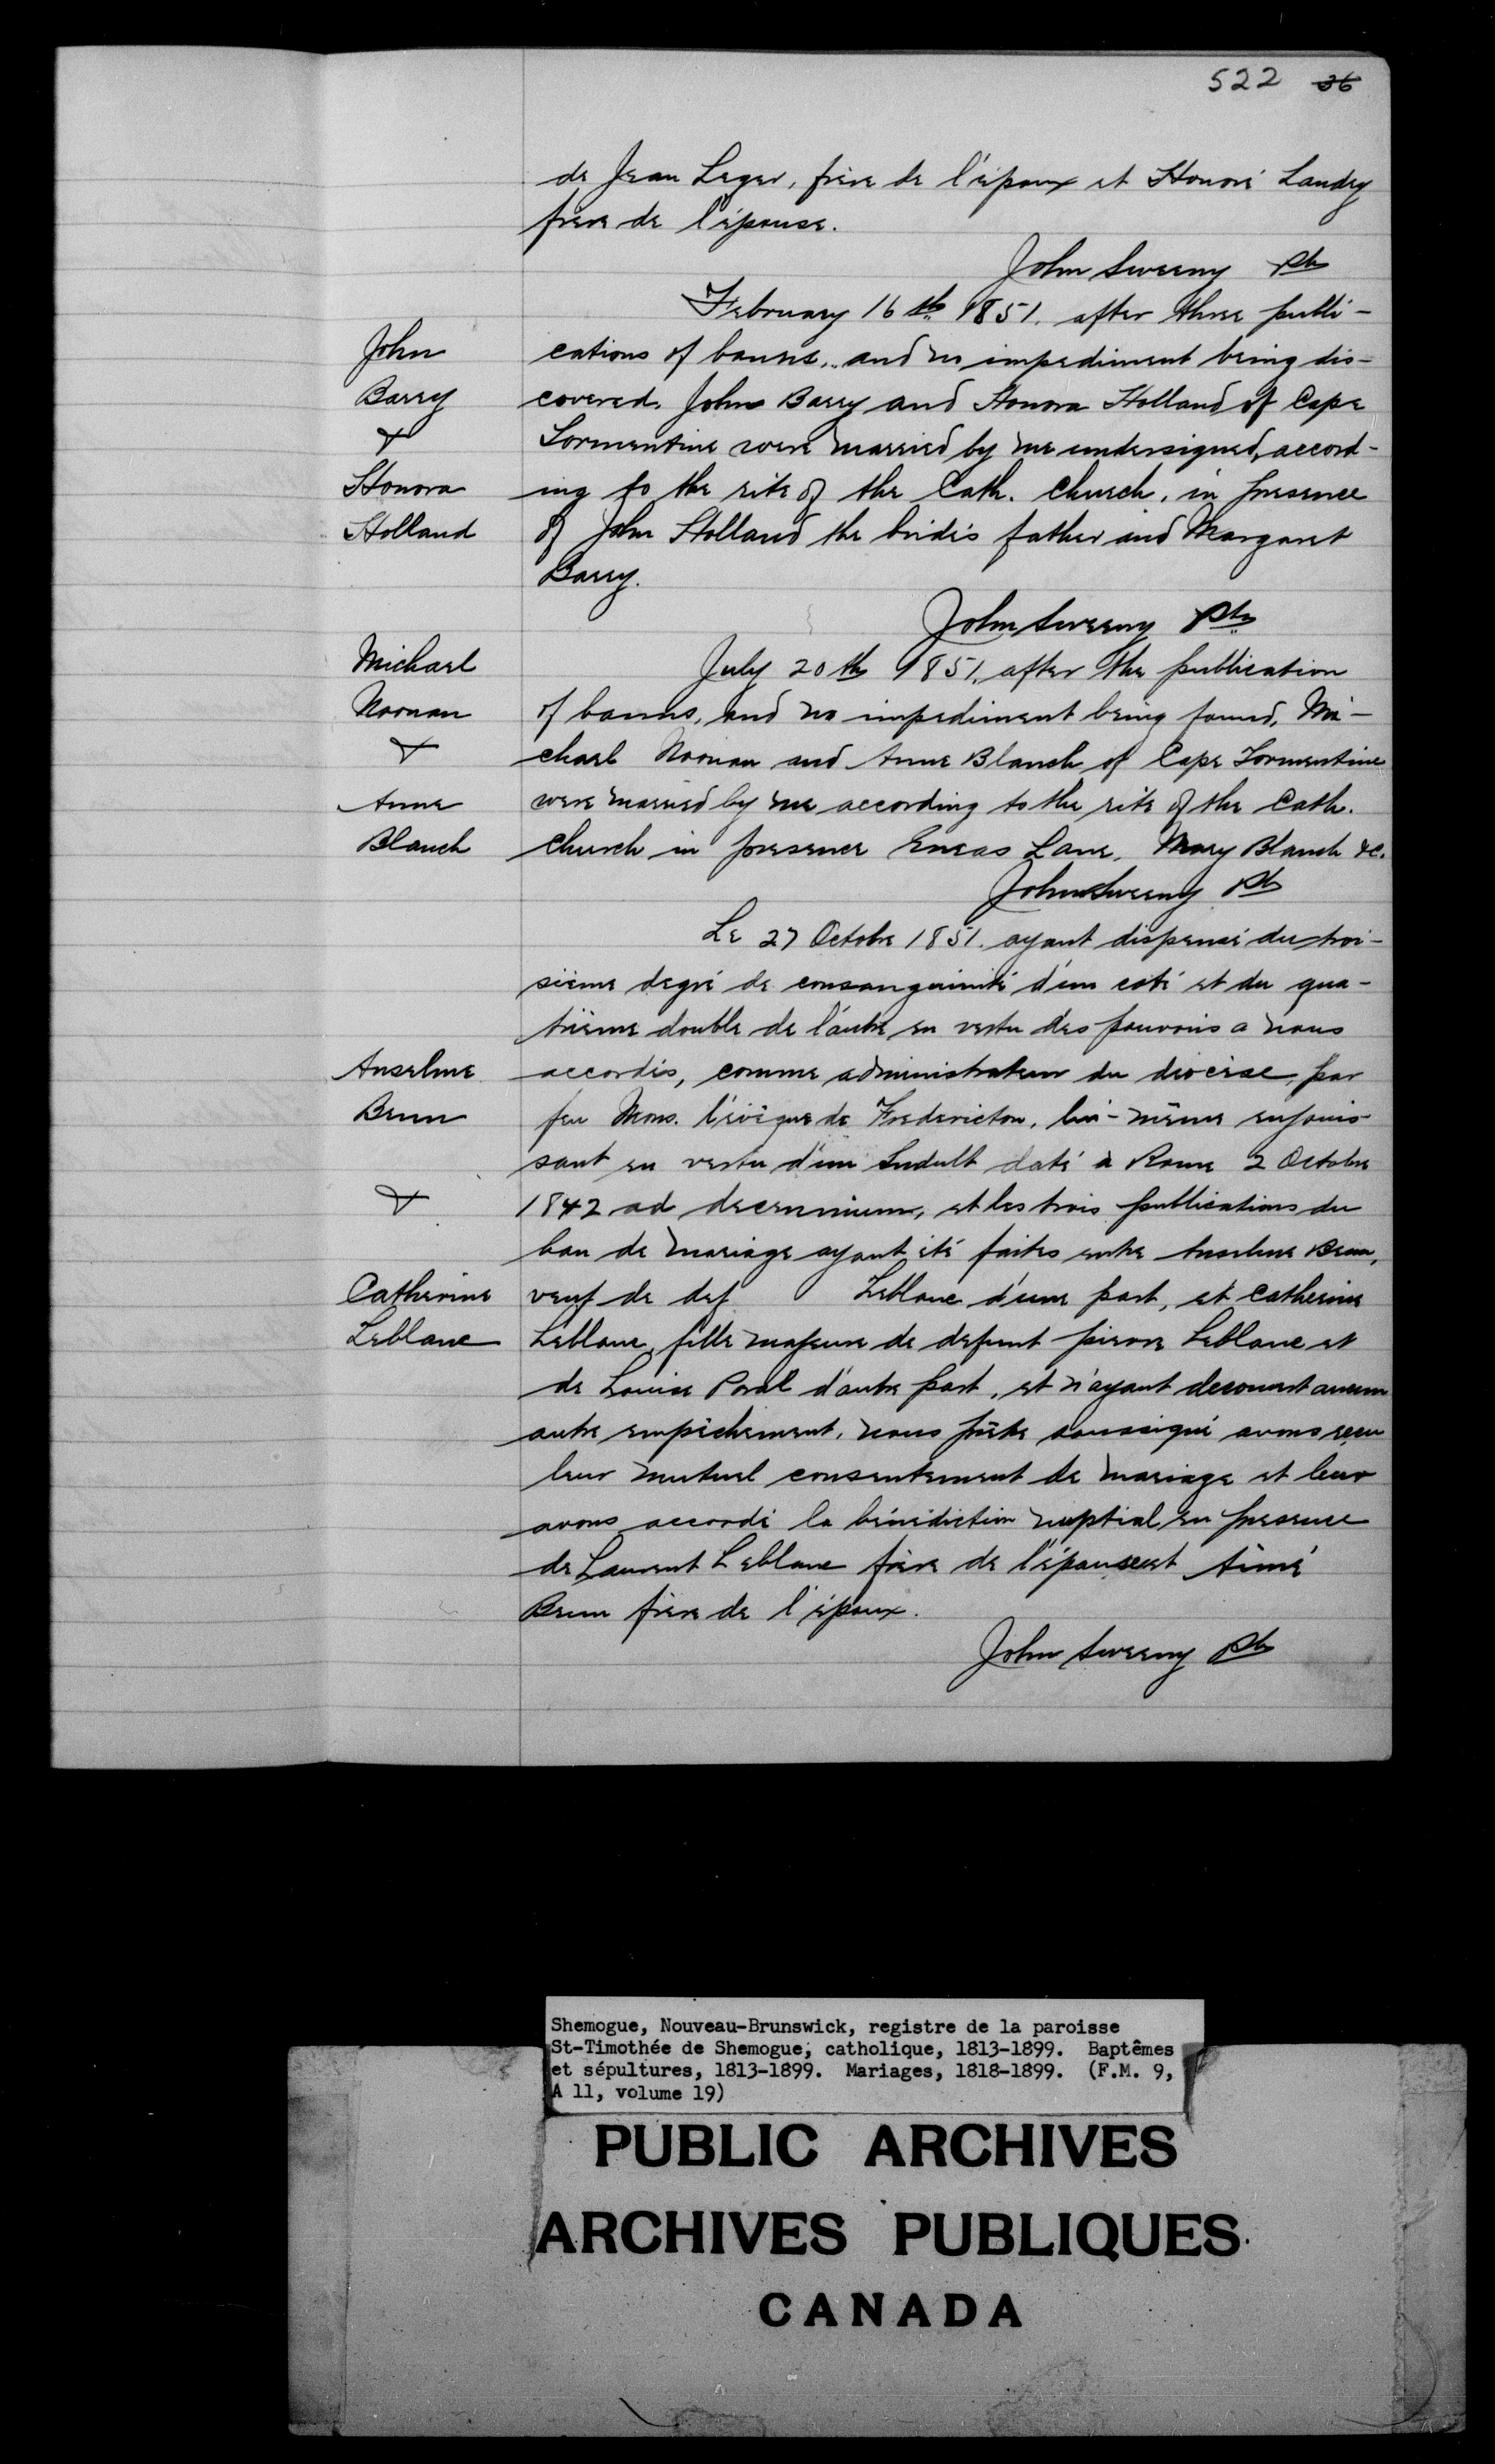 522 36
de Jean Leger, frère de l'époux et Honoré Landry
frère de l'épouse.
John Sweeny Ptr
February 16th 1851. after three publi-
John
cations of banns, and no impediment being dis-
Barry
covered, John Barry and Honora Holland of Cape
&
Tormentine were married by me undersigned, accord-
Honora
ing to the rite of the Cath. Church, in presence
Holland
of John Holland the bride's father and Margaret
Barry.
John Sweeny Ptr
Michael
July 20th 1851, after the publication
Noonan
of banns, and no impediment being found, Mi-
&
chael Noonan and Anne Blanch of Cape Tormentine
Anne
were married by me according to the rite of the Cath.
Blanch
Church in presence Eneas Lane, Mary Blanch &c.
John Sweeny Ptr
Le 27 Octobre 1851. ayant dispensé du troi-
sième degré de consanguinité d'un coté et du qua-
trième double de l'autre en vertu des pouvoirs a nous
Anselme
accordés, comme administrateur du diocèse, par
Brun
feu Mons. l'évêque de Fredericton, lui-même enjouis-
sant en vertu d'un Indult daté à Rome 2 Octobre
&
1842 ad decennium, et les trois publications du
ban de mariage ayant été faites entre Anselme Brun,
Catherine
veuf de def Leblanc d'une part, et Catherine
Leblanc
Leblanc, fille majeure de defunt pierre Leblanc et
de Louise d'autre part, et n'ayant decouvert aucun
autre empêchement, nous prêtre soussigné avons reçu
leur mutuel consentement de mariage et leur
avons accordé la bénédiction nuptial en presence
de Laurent Leblanc frère de l'épouse et Aimé
Brun frère de l'époux.
John Sweeny Ptr
Shemogue, Nouveau-Brunswick, registre de la paroisse
St-Timothée de Shemogue, catholique, 1813-1899. Baptêmes
et sépultures, 1813-1899. Mariages, 1818-1899. (F.M. 9,
A 11, volume 19)
PUBLIC ARCHIVES
ARCHIVES PUBLIQUES
CANADA